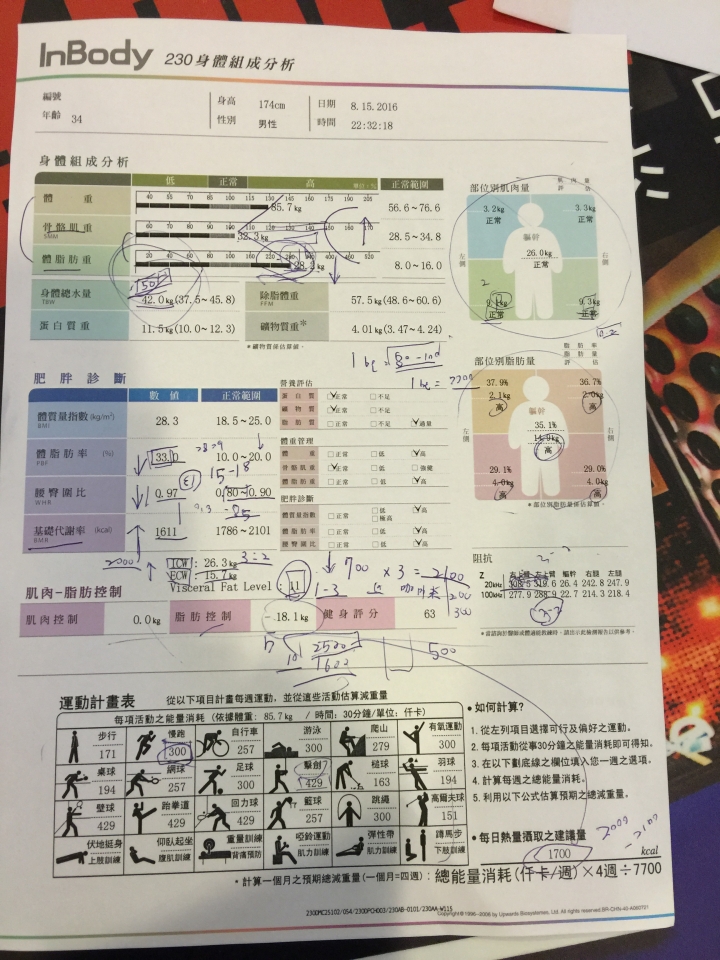 InBody 230身體組成分析
編號
年齡 34
身高 174cm
性別 男性
日期 8.15.2016
時間 22:32:18
身體組成分析
低 正常 高 單位:% 正常範圍
體重 40 55 70 85 100 115 130 145 160 175 190 205
85.7kg 56.6~76.6
骨骼肌重 SMM
32.3kg 28.5~34.8
體脂肪重 20 40 60 80 100 160 220 280 340 400 460 520
28.3kg 8.0~16.0
身體總水量 TBW 42.0kg(37.5~45.8) 除脂體重 FFM 57.5kg(48.6~60.6)
蛋白質重 11.5kg(10.0~12.3) 礦物質重* 4.01kg(3.47~4.24)
*礦物質係估算值。
部位別肌肉量
肌肉量
評估
3.2kg 正常 3.3kg 正常
軀幹
26.0kg
正常
左側 右側
正常 9.3kg 正常
1 kg = 7700
肥胖診斷
數值 正常範圍
體質量指數(kg/m²) BMI 28.3 18.5~25.0
體脂肪率 (%) PBF 33.0 10.0~20.0
15-18
腰臀圍比 WHR 0.97 0.80~0.90
基礎代謝率 (kcal) BMR 1611 1786~2101
2000
ICW: 26.3kg 3:2
ECW: 15.7kg
Visceral Fat Level : 11
營養評估
蛋白質 ☑正常 □不足
礦物質 ☑正常 □不足
脂肪質 □正常 □不足 ☑過量
體重管理
體重 □正常 □低 ☑高
骨骼肌重 ☑正常 □低 □強健
體脂肪重 □正常 □低 ☑高
肥胖診斷
體質量指數 □正常 □低 ☑高
□極高
體脂肪率 □正常 □低 ☑高
腰臀圍比 □正常 □低 ☑高
部位別脂肪量
脂肪率
脂肪量
評估
37.9% 2.1kg 高
36.7% 2.0kg 高
軀幹
35.1%
14.9kg
高
左側 右側
29.1% 4.0kg 高
29.0% 4.0kg 高
*部位別脂肪量係估算值。
700 × 3 = 2100
阻抗
Z 右上臂 左上臂 軀幹 右腿 左腿
20kHz 308.5 319.6 26.4 242.8 247.9
100kHz 277.9 288.9 22.7 214.3 218.4
*當諮詢於醫師或體適能教練時,請出示此檢測報告以供參考。
肌肉-脂肪控制
肌肉控制 0.0kg 脂肪控制 -18.1kg 健身評分 63
2500
1600
500
運動計畫表 從以下項目計畫每週運動,並從這些活動估算減重量
每項活動之能量消耗 (依據體重: 85.7kg / 時間: 30分鐘/單位: 仟卡)
步行 171 慢跑 300 自行車 257 游泳 300 爬山 279 有氧運動 300
桌球 194 網球 257 足球 300 擊劍 429 槌球 163 羽球 194
壁球 429 跆拳道 429 回力球 429 籃球 257 跳繩 300 高爾夫球 151
伏地挺身 上肢訓練 仰臥起坐 腹肌訓練 重量訓練 背痛預防 啞鈴運動 肌力訓練 彈性帶 肌力訓練 蹲馬步 下肢訓練
•如何計算?
1. 從左列項目選擇可行及偏好之運動。
2. 每項活動從事30分鐘之能量消耗即可得知。
3. 在以下劃底線之欄位填入您一週之選項。
4. 計算每週之總能量消耗。
5. 利用以下公式估算預期之總減重量。
•每日熱量攝取之建議量 2000
1700 kcal
•計算一個月之預期總減重量(一個月=四週): 總能量消耗(仟卡/週)×4週÷7700